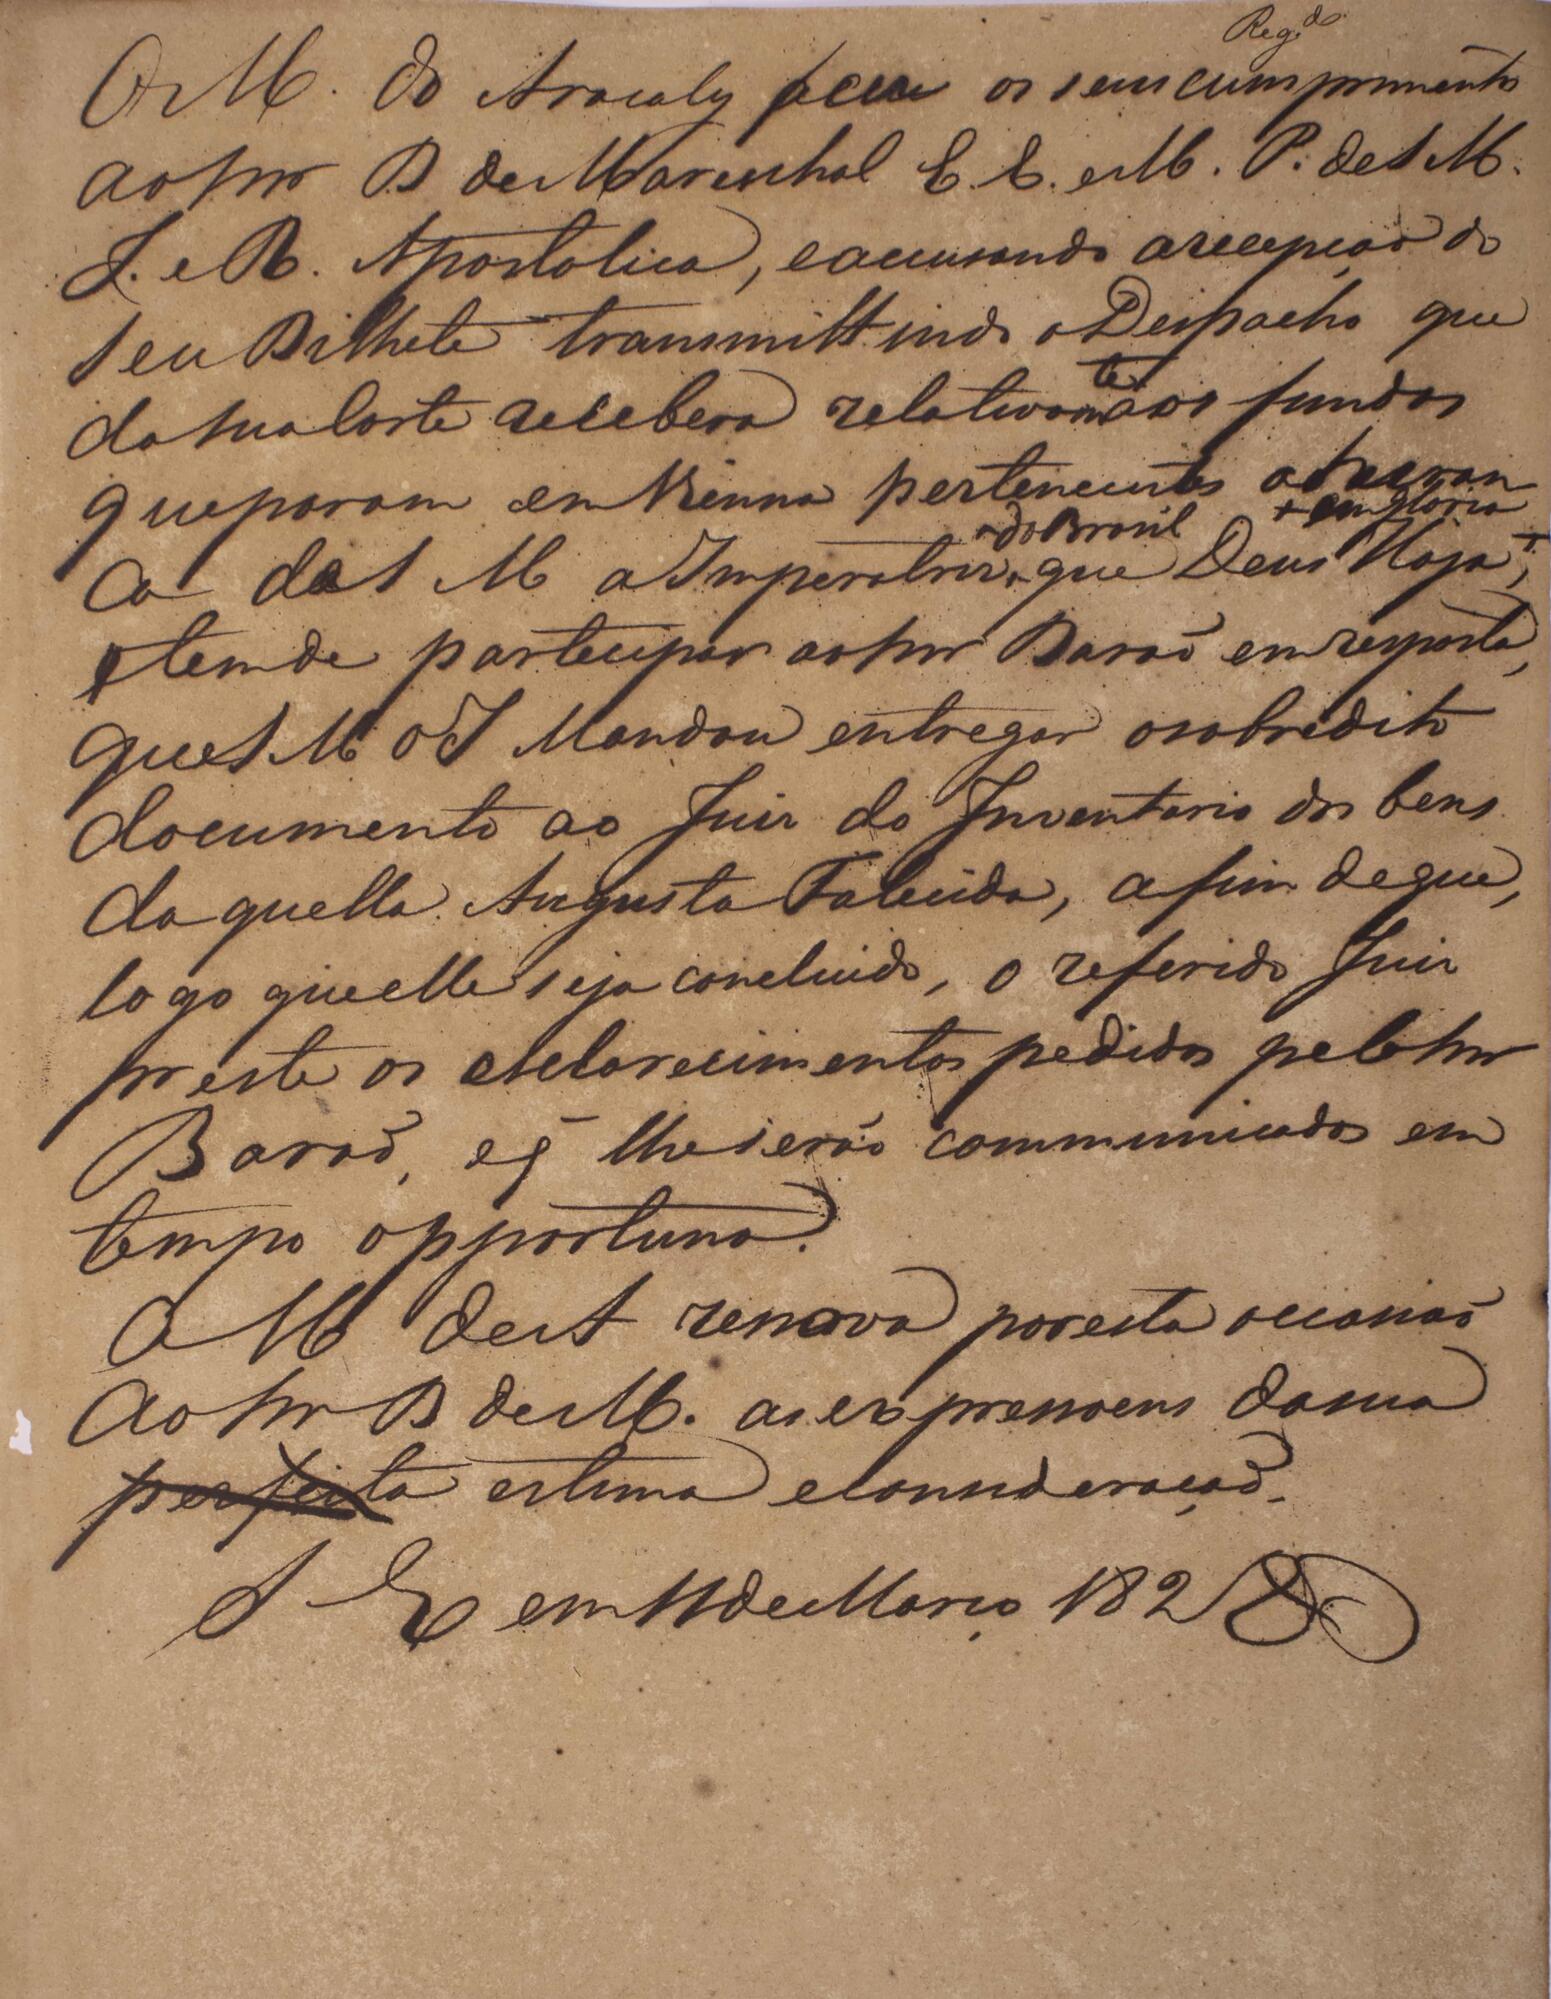 Reg.do
O M. do Aracaty faz os seus cumprimentos
ao Snr B de Mareschal E. E. e M. P. de S M.
I. e R. Apostolica, e accusando a recepção do
seu Bilhete transmittindo o Despacho que
da sua Corte recebera relativamte aos fundos
que param em Vienna pertencentes a heran
do Brasil + em gloria
ça de S M a Imperatriz, que Deus Haja +,
tem de participar ao Snr Barão em resposta,
que S M o I Mandou entregar o sobredito
documento ao Juiz do Inventario dos bens
daquella Augusta Falecida, afim de que,
logo que elle seja concluido, o referido Juiz
preste os esclarecimentos pedidos pelo Snr
Barão, e q̃ lhe serão communicados em
tempo opportuno.
O M de A renova por esta occasião
ao Snr B de M. as expressoens da sua
perfeita estima e consideração.
S E em 11 de Março 1828